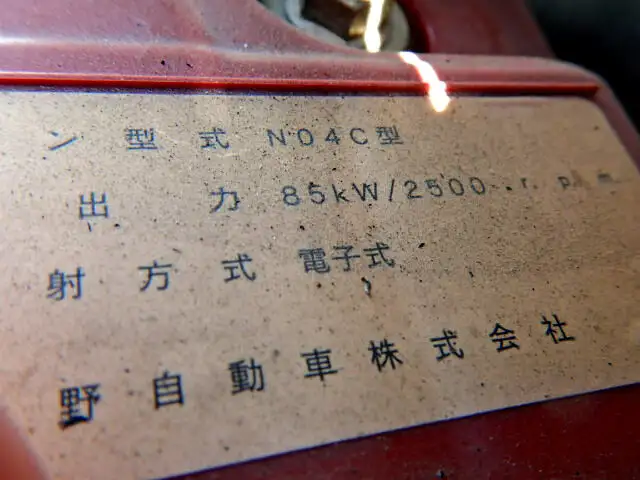 ン型式 N04C型
出力 85kW/2500 r.p.m
射方式 電子式
野自動車株式会社